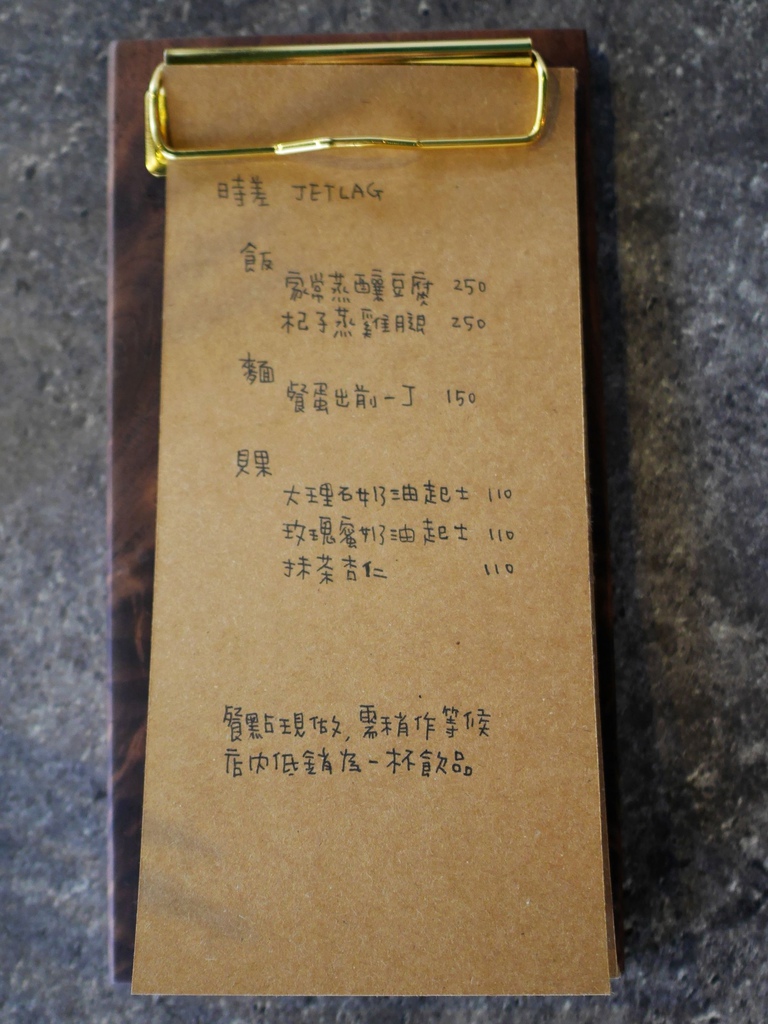 時差 JETLAG
飯
家常蒸釀豆腐 250
杞子蒸雞腿 250
麵
餐蛋出前一丁 150
貝果
大理石奶油起士 110
玫瑰蜜奶油起士 110
抹茶杏仁 110
餐點現做, 需稍作等候
店內低銷為一杯飲品